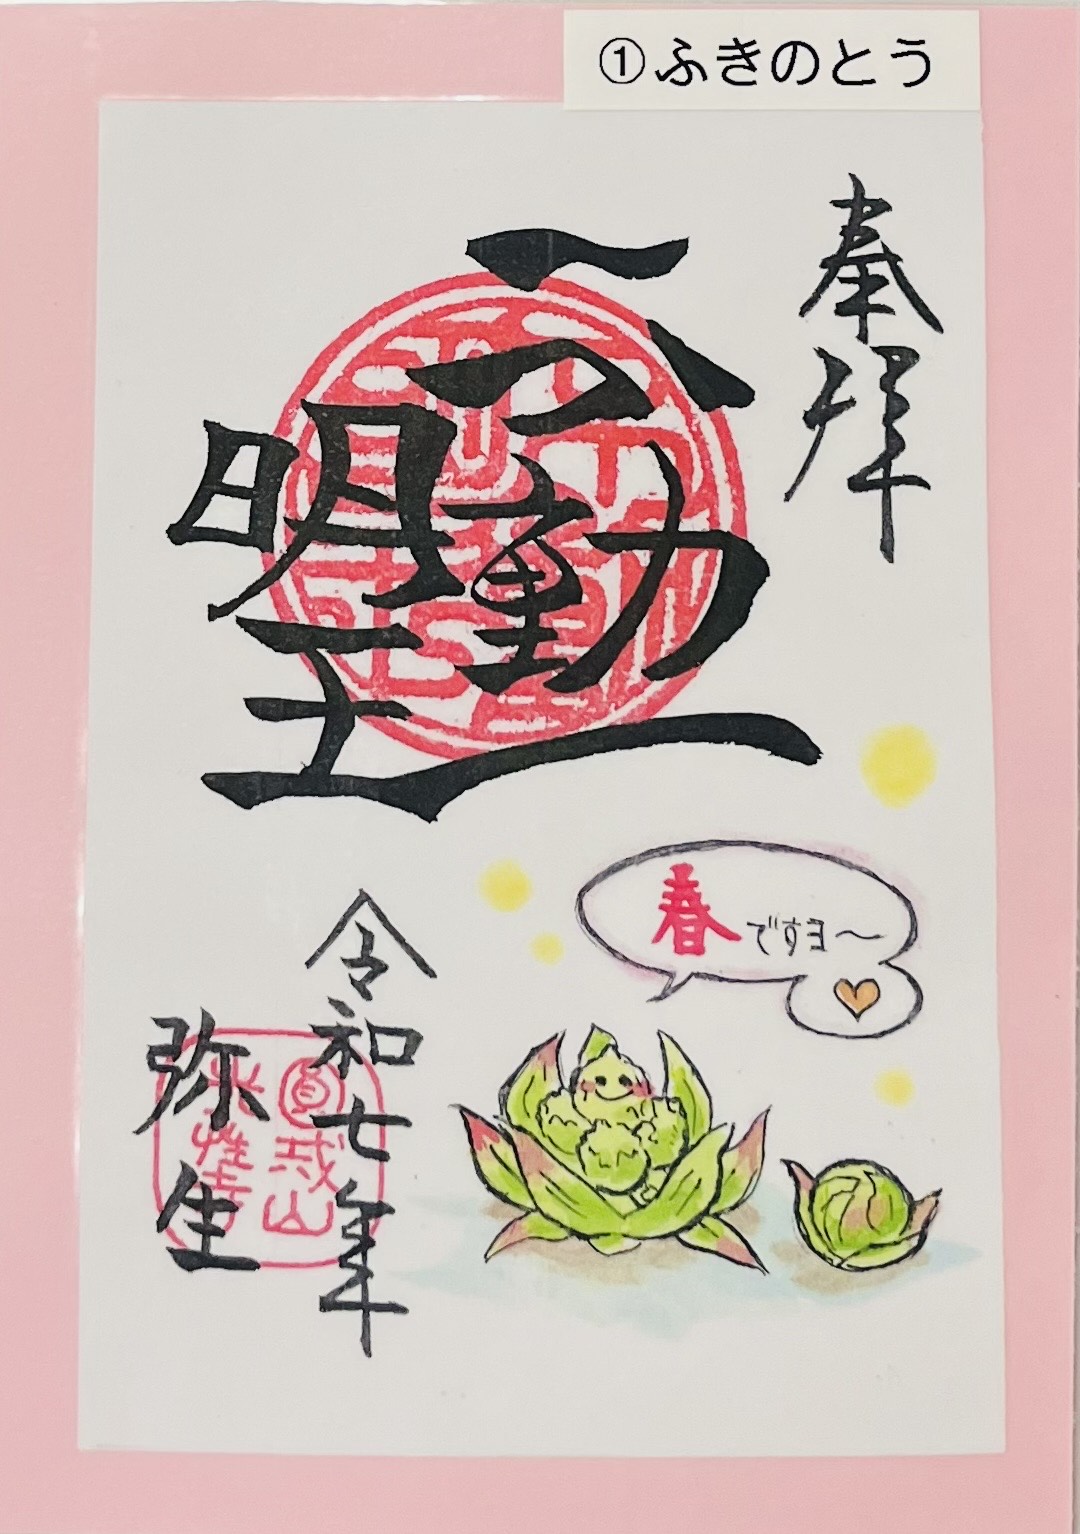 ①ふきのとう
奉拝
不動
明王
春ですヨ〜
令和七年
弥生
圓戒山